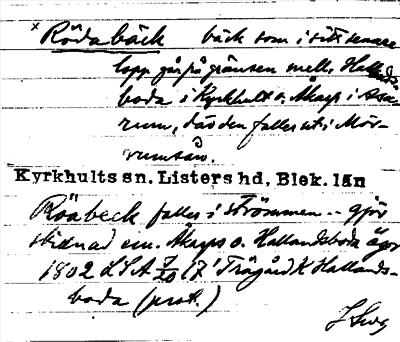 x Röda bäck bäck som i sitt senare
lopp går på gränsen mell. Hallands-
boda i Kyrkhult o. Åkarp i Asa-
rum, där den faller ut i Mör-
rumsån.
Kyrkhults sn. Listers hd, Blek. län
Röabeck faller i Strömmen -- gjör
skidnad em. Åkarps o. Hallandsboda ägor
1802 LSA 7/20 (7' Trägård K Hallands-
boda (prot.)